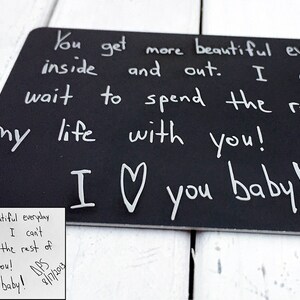 You get more beautiful ev
inside and out. I
wait to spend the r
my life with you!
I ♡ you baby!
tiful everyday
I can't
the rest of
you!
baby!